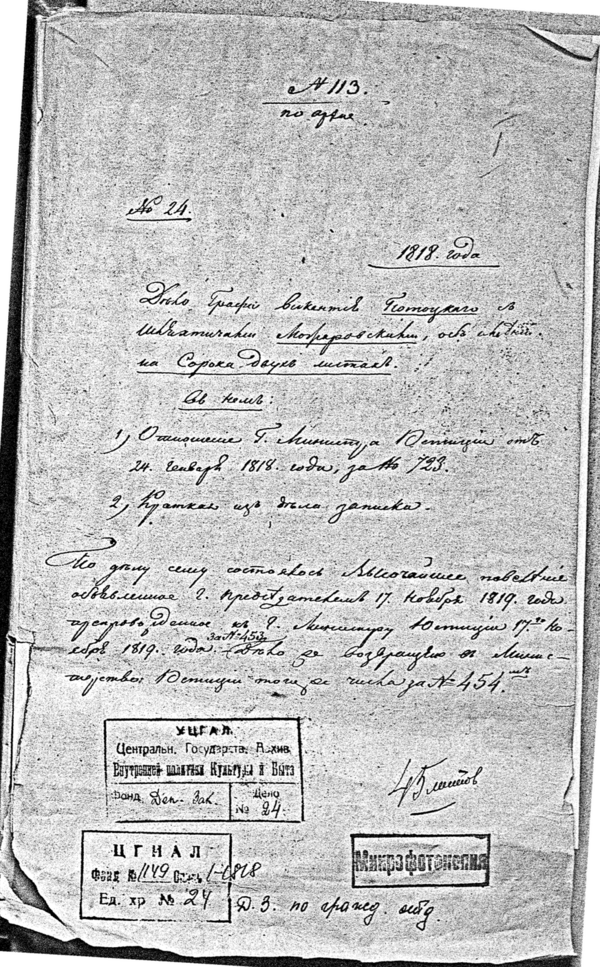 № 113.
по архив
№ 24.
1818. года
Дѣло Графа Викентія Потоцкаго съ
Шляхтичами объ
на Сорока двухъ листахъ.
Въ немъ:
1, Отношеніе Г. Министра Юстиціи отъ
24. Генваря 1818. года, за № 723.
2, Краткая изъ дѣла записка.
По дѣлу сему состоялось Высочайшее повелѣніе
объявленное Г. Предсѣдателемъ 17. Ноября 1819. года
препровожденное къ Г. Министру Юстиціи 17.го Но-
за № 453.
ября 1819. года. Дѣло же возвращено въ Минис-
терство Юстиціи того же числа за № 454
УЦГАЛ.
Центральн. Государств. Архив
Внутренней политики Культуры и Быта
Фонд. Деп. Зак. Дело
№ 24.
45 листов
ЦГИАЛ
Фонд № 1149 Опись 1-1818
Ед. хр № 24
Микрофотокопия
Д. 3. по гражд.